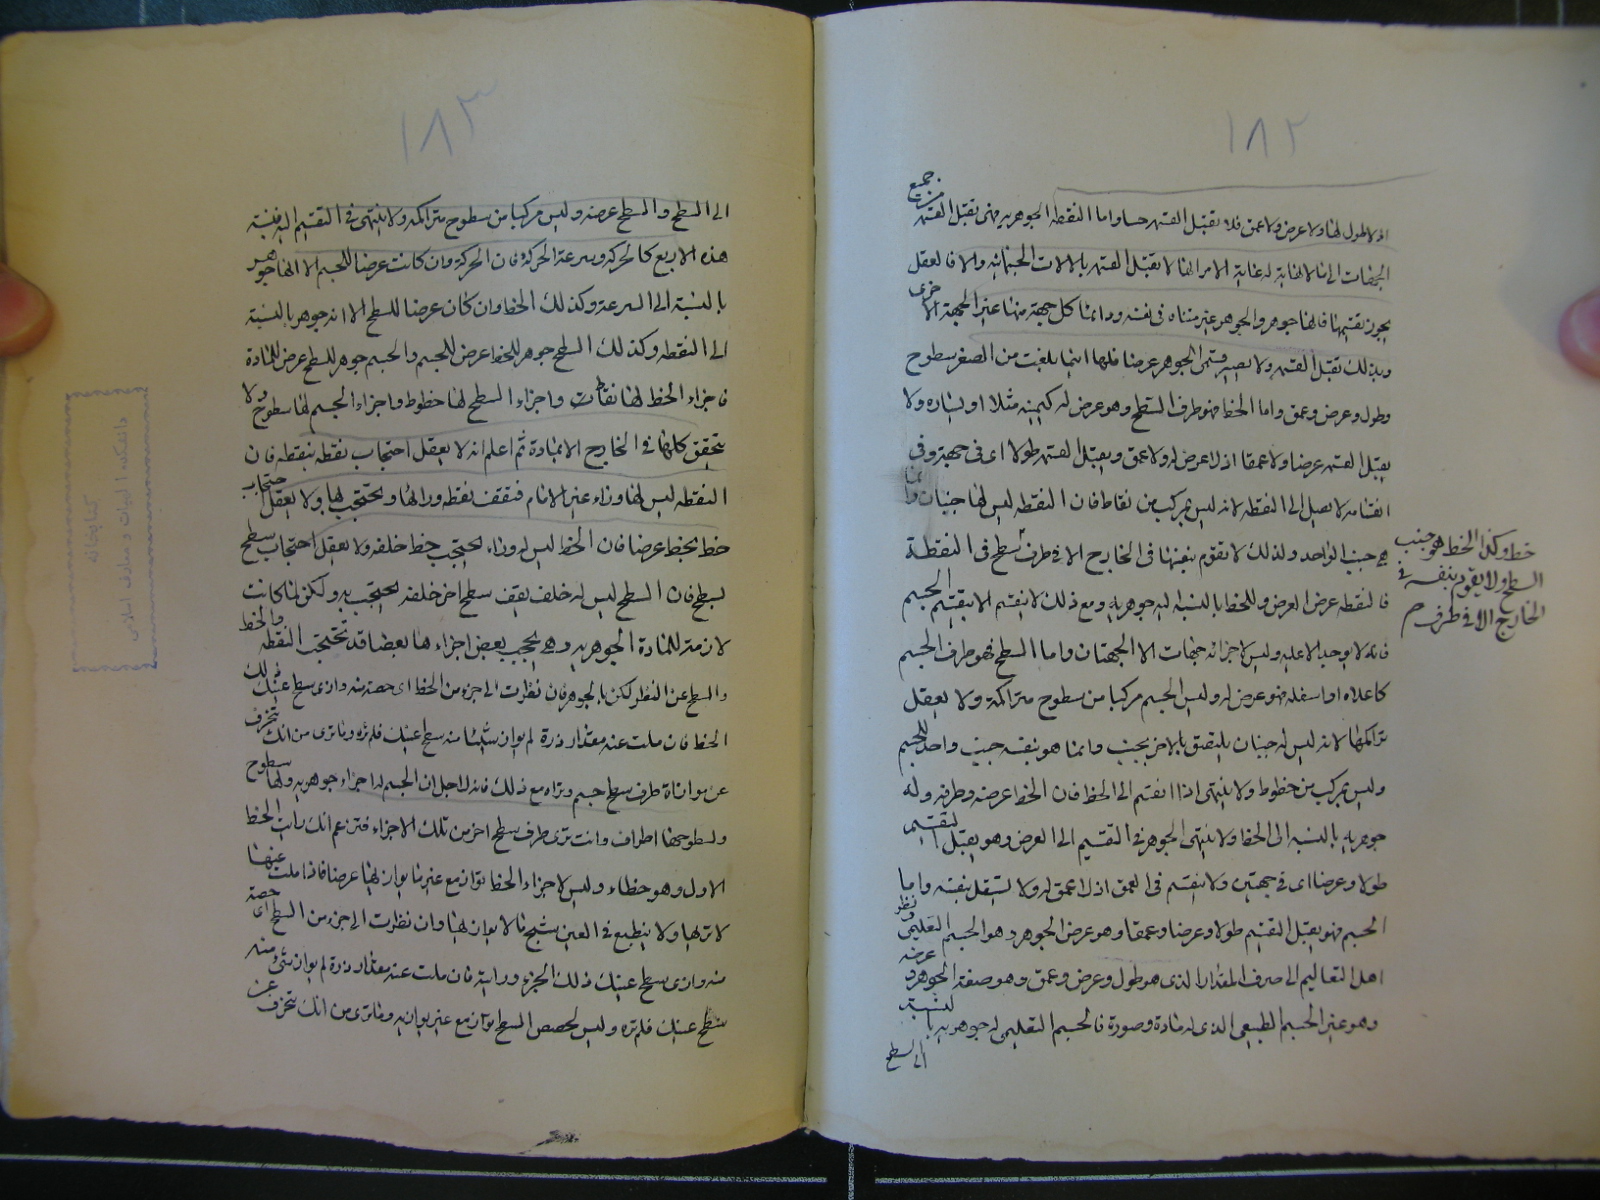 ١٨٢
اذ لا طول لها ولا عرض ولا عمق فلا تقبل القسمة حسا واما النقطة الجوهرية فهى تقبل القسمة من جميع
الجهات الى ما لا نهاية له غاية الامر انها لا تقبل القسمة بالالات الجسمانية والا فالعقل
يجوز تقسيمها فانها جوهر والجوهر غير متناه فى نفسه ودائما كل جهة منها غير الجهة الاخرى
وبذلك تقبل القسمة ولا يصير قسمى الجوهر عرضا فلها اينما بلغت من الصغر سطوح
وطول وعرض وعمق واما الخط فهو طرف السطح وهو عرض له كيمينه مثلا او يساره ولا
يقبل القسمة عرضا ولا عمقا اذ لا عرض له ولا عمق ويقبل القسمة طولا اى فى جهتين وفى
انقسامه لا يصل الى النقطة لانه ليس بمركب من نقاط فان النقطة ليس لها جنبان وانما
هى جنب الواحد ولذلك لا تقوم بنفسها فى الخارج الا فى طرف سطح فى النقطة
خط وكذا الخط هو جنب
السطح ولا يقوم بنفسه فى
الخارج الا فى طرف م
فالنقطة عرض العرض وللخط بالنسبة اليه جوهرية ومع ذلك لا تنقسم الا بتقسيم الجسم
فانه لا يوجد الا عليه وليس لاجزائه جهات الا الجهتان واما السطح فهو طرف الجسم
كاعلاه او اسفله فهو عرض له وليس الجسم مركبا من سطوح متراكمة ولا يعقل
تراكمها لانه ليس له جنبان يلتصق بالاخر بجنب وانما هو نفسه جنب واحد للجسم
وليس بمركب من خطوط ولا ينتهى اذا انقسم الى الخط فان الخط عرضه وطرفه وله
جوهرية بالنسبة الى الخط ولا ينتهى الجوهر فى التقسيم الى العرض وهو يقبل التقسيم
طولا وعرضا اى فى جهتين ولا ينقسم فى العمق اذ لا عمق له ولا يستقل بنفسه واما
الجسم فهو يقبل التقسيم طولا وعرضا وعمقا وهو عرض الجوهر وهو الجسم التعليمى ونظر
اهل التعاليم الى صرف المقدار الذى هو طول وعرض وعمق وهو صفة الجوهر وعرضه
وهو غير الجسم الطبيعى الذى له مادة وصورة فالجسم التعليمى له جوهرية بالنسبة
الى السطح
١٨٣
الى السطح والسطح عرضه وليس مركبا من سطوح متراكمة ولا ينتهى فى التقسيم اليه فنسبة
هذه الاربع كالحركة وسرعة الحركة فان الحركة وان كانت عرضا للجسم الا انها جوهر
بالنسبة الى السرعة وكذلك الخط وان كان عرضا للسطح الا انه جوهر بالنسبة
الى النقطة وكذلك السطح جوهر للخط عرض للجسم والجسم جوهر للسطح عرض للمادة
فاجزاء الخط لها نقاط واجزاء السطح لها خطوط واجزاء الجسم لها سطوح ولا
يتحقق كلها فى الخارج الا بمادة ثم اعلم انه لا يعقل احتجاب نقطة بنقطة فان
النقطة ليس لها وراء غير الامام فتقف نقطة ورائها وتحتجب بها ولا يعقل احتجاب
خط بخط عرضا فان الخط ليس له وراء يحتجب خط خلفه ولا يعقل احتجاب سطح
بسطح فان السطح ليس له خلف يقف سطح اخر خلفه يحتجب به ولكن لما كانت
لازمة للمادة الجوهرية وهى يحجب بعض اجزاءها بعضا قد تحتجب النقطة والخط
والسطح عن النظر لكن بالجوهر فان نظرت الى جزء من الخط اى حصة منه وازى سطح عينك ذلك
الخط فان ملت عنه مقدار ذرة لم يوازن شيئا منه سطح عينك فلم تره وما ترى من انك تنحرف
عن موازاة طرف سطح جسم وتراه مع ذلك فانه لاجل ان الجسم له اجزاء جوهرية ولها سطوح
ولسطوحها اطراف وانت ترى طرف سطح اخر من تلك الاجزاء فتزعم انك رايت الخط
الاول وهو خطاء وليس لاجزاء الخط توازن مع غير ما يوازيها عرضا فاذا ملت عنها
لا ترىها ولا ينطبع فى العين شبح ما لا يوازيها وان نظرت الى جزء من السطح اى حصة
منه وازى سطح عينك ذلك الجزء ورايته فان ملت عنه مقدار ذرة لم يوازن شئ منه
سطح عينك فلم تره وليس لحصص السطح توازن مع غير موازيه وما ترى من انك تنحرف عن
دانشكده الهيات و معارف اسلامى
كتابخانه